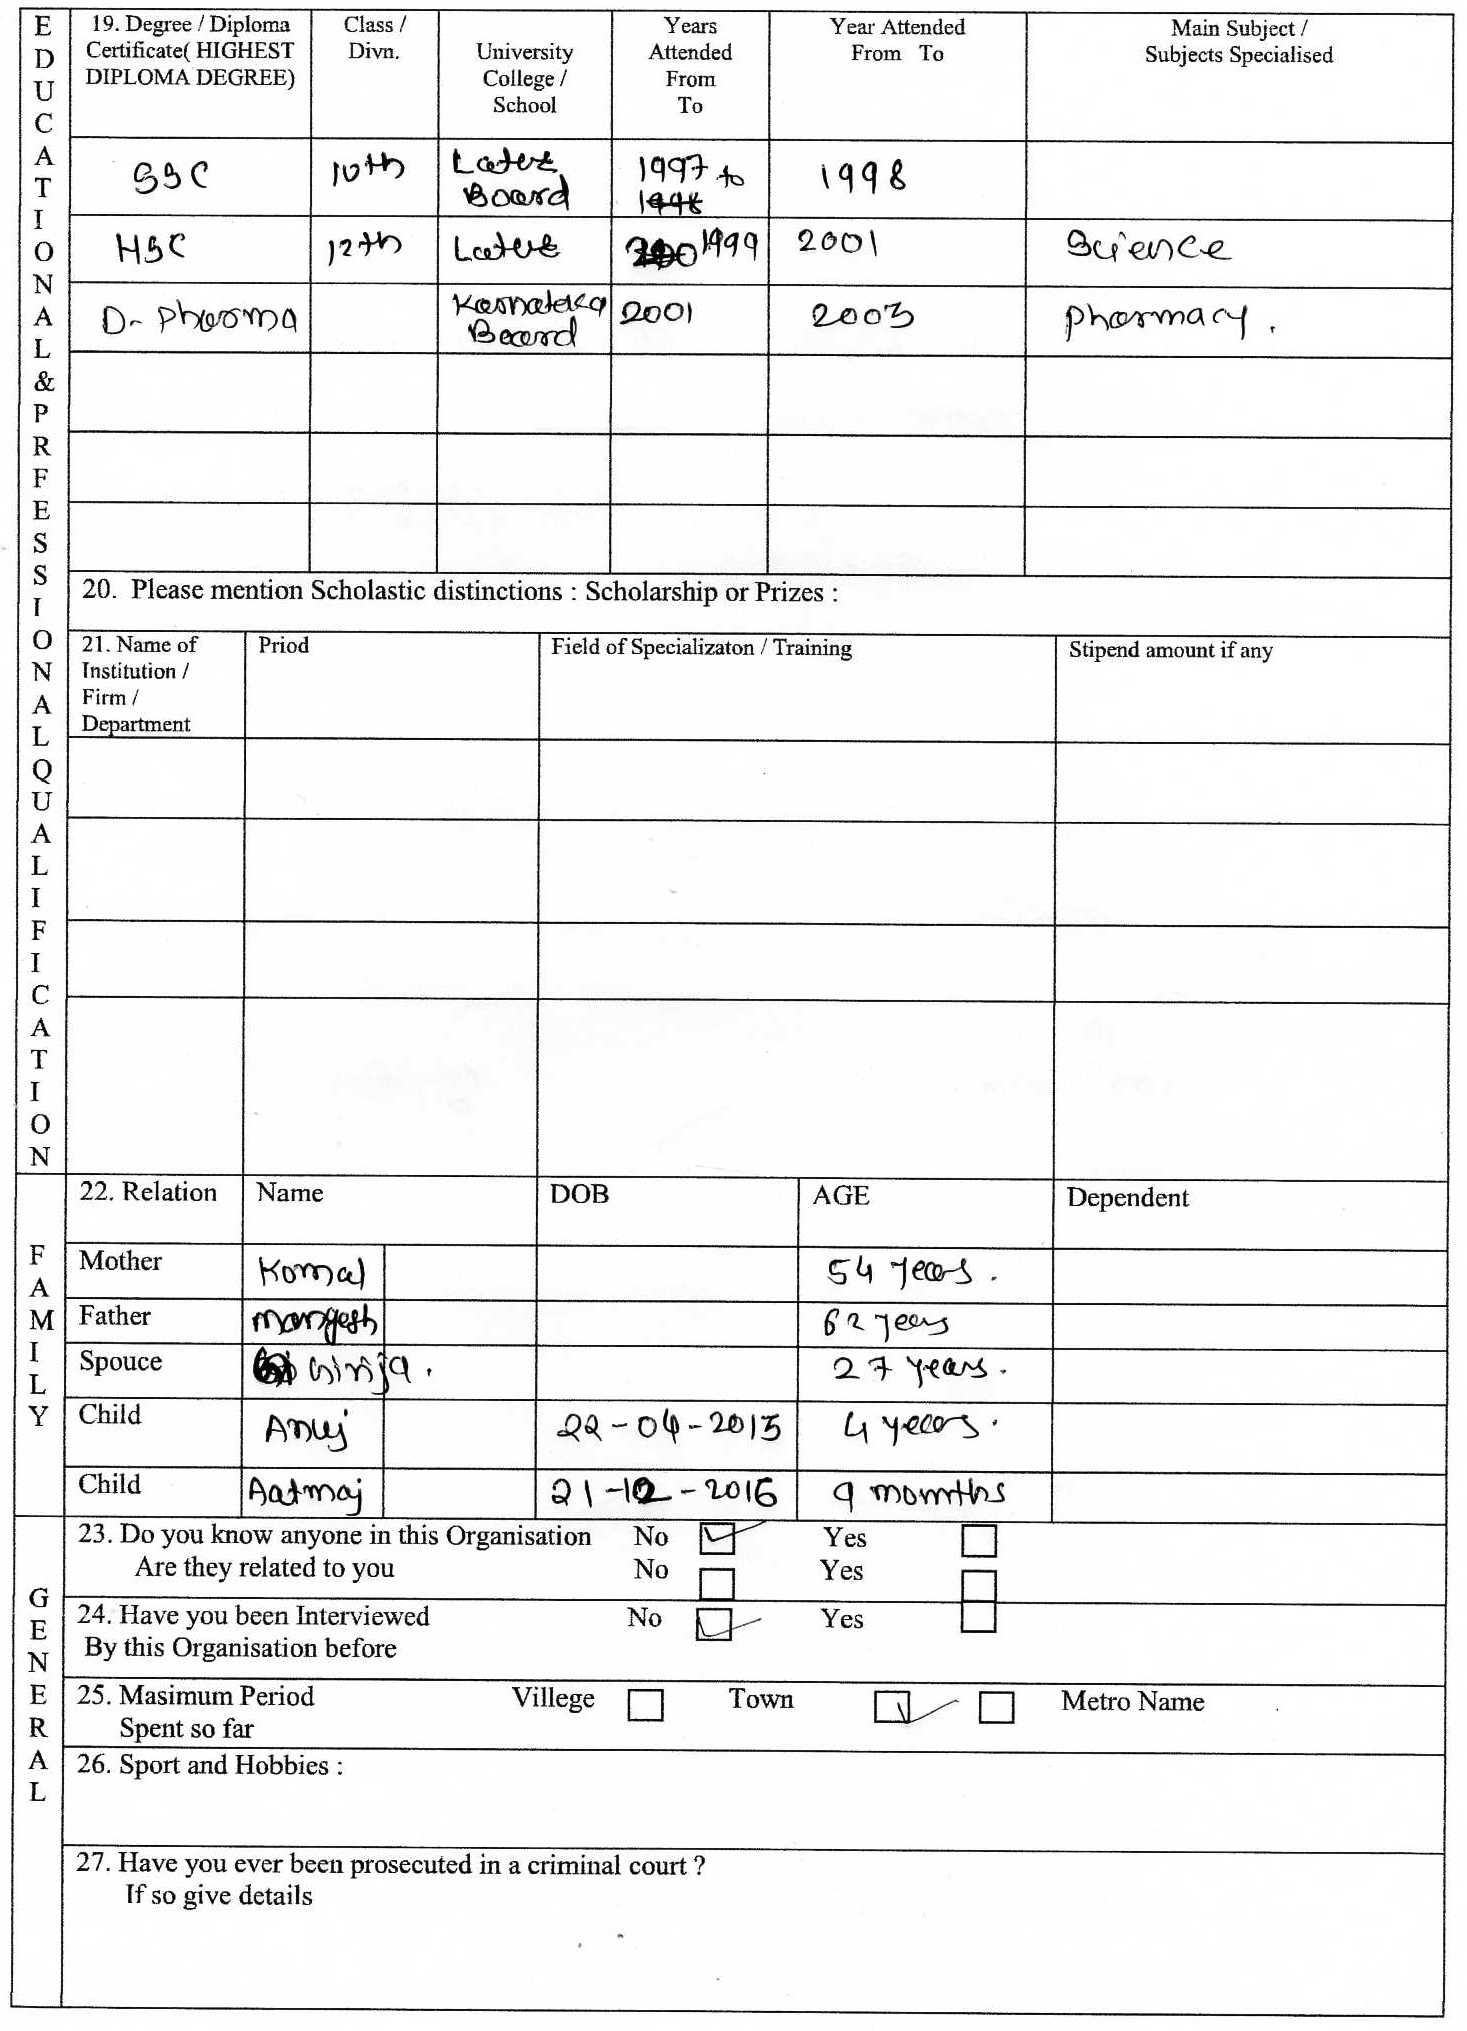 EDUCATIONAL & PRFESSIONAL QUALIFICATION
19. Degree / Diploma Certificate( HIGHEST DIPLOMA DEGREE) Class / Divn. University College / School Years Attended From To Year Attended From To Main Subject / Subjects Specialised
SSC 10th Latur Board 1997 to 1998 1998
HSC 12th Latur 1999 2001 Science
D-Pharma Karnataka Board 2001 2003 pharmacy.
20. Please mention Scholastic distinctions : Scholarship or Prizes :
21. Name of Institution / Firm / Department Priod Field of Specializaton / Training Stipend amount if any
FAMILY
22. Relation Name DOB AGE Dependent
Mother Komal 54 years.
Father mangesh 62 years
Spouce 27 years.
Child Anuj 22-04-2013 4 years.
Child Aatmaj 21-12-2016 9 momths
GENERAL
23. Do you know anyone in this Organisation No Yes
Are they related to you No Yes
24. Have you been Interviewed No Yes
By this Organisation before
25. Masimum Period Villege Town Metro Name
Spent so far
26. Sport and Hobbies :
27. Have you ever been prosecuted in a criminal court ?
If so give details